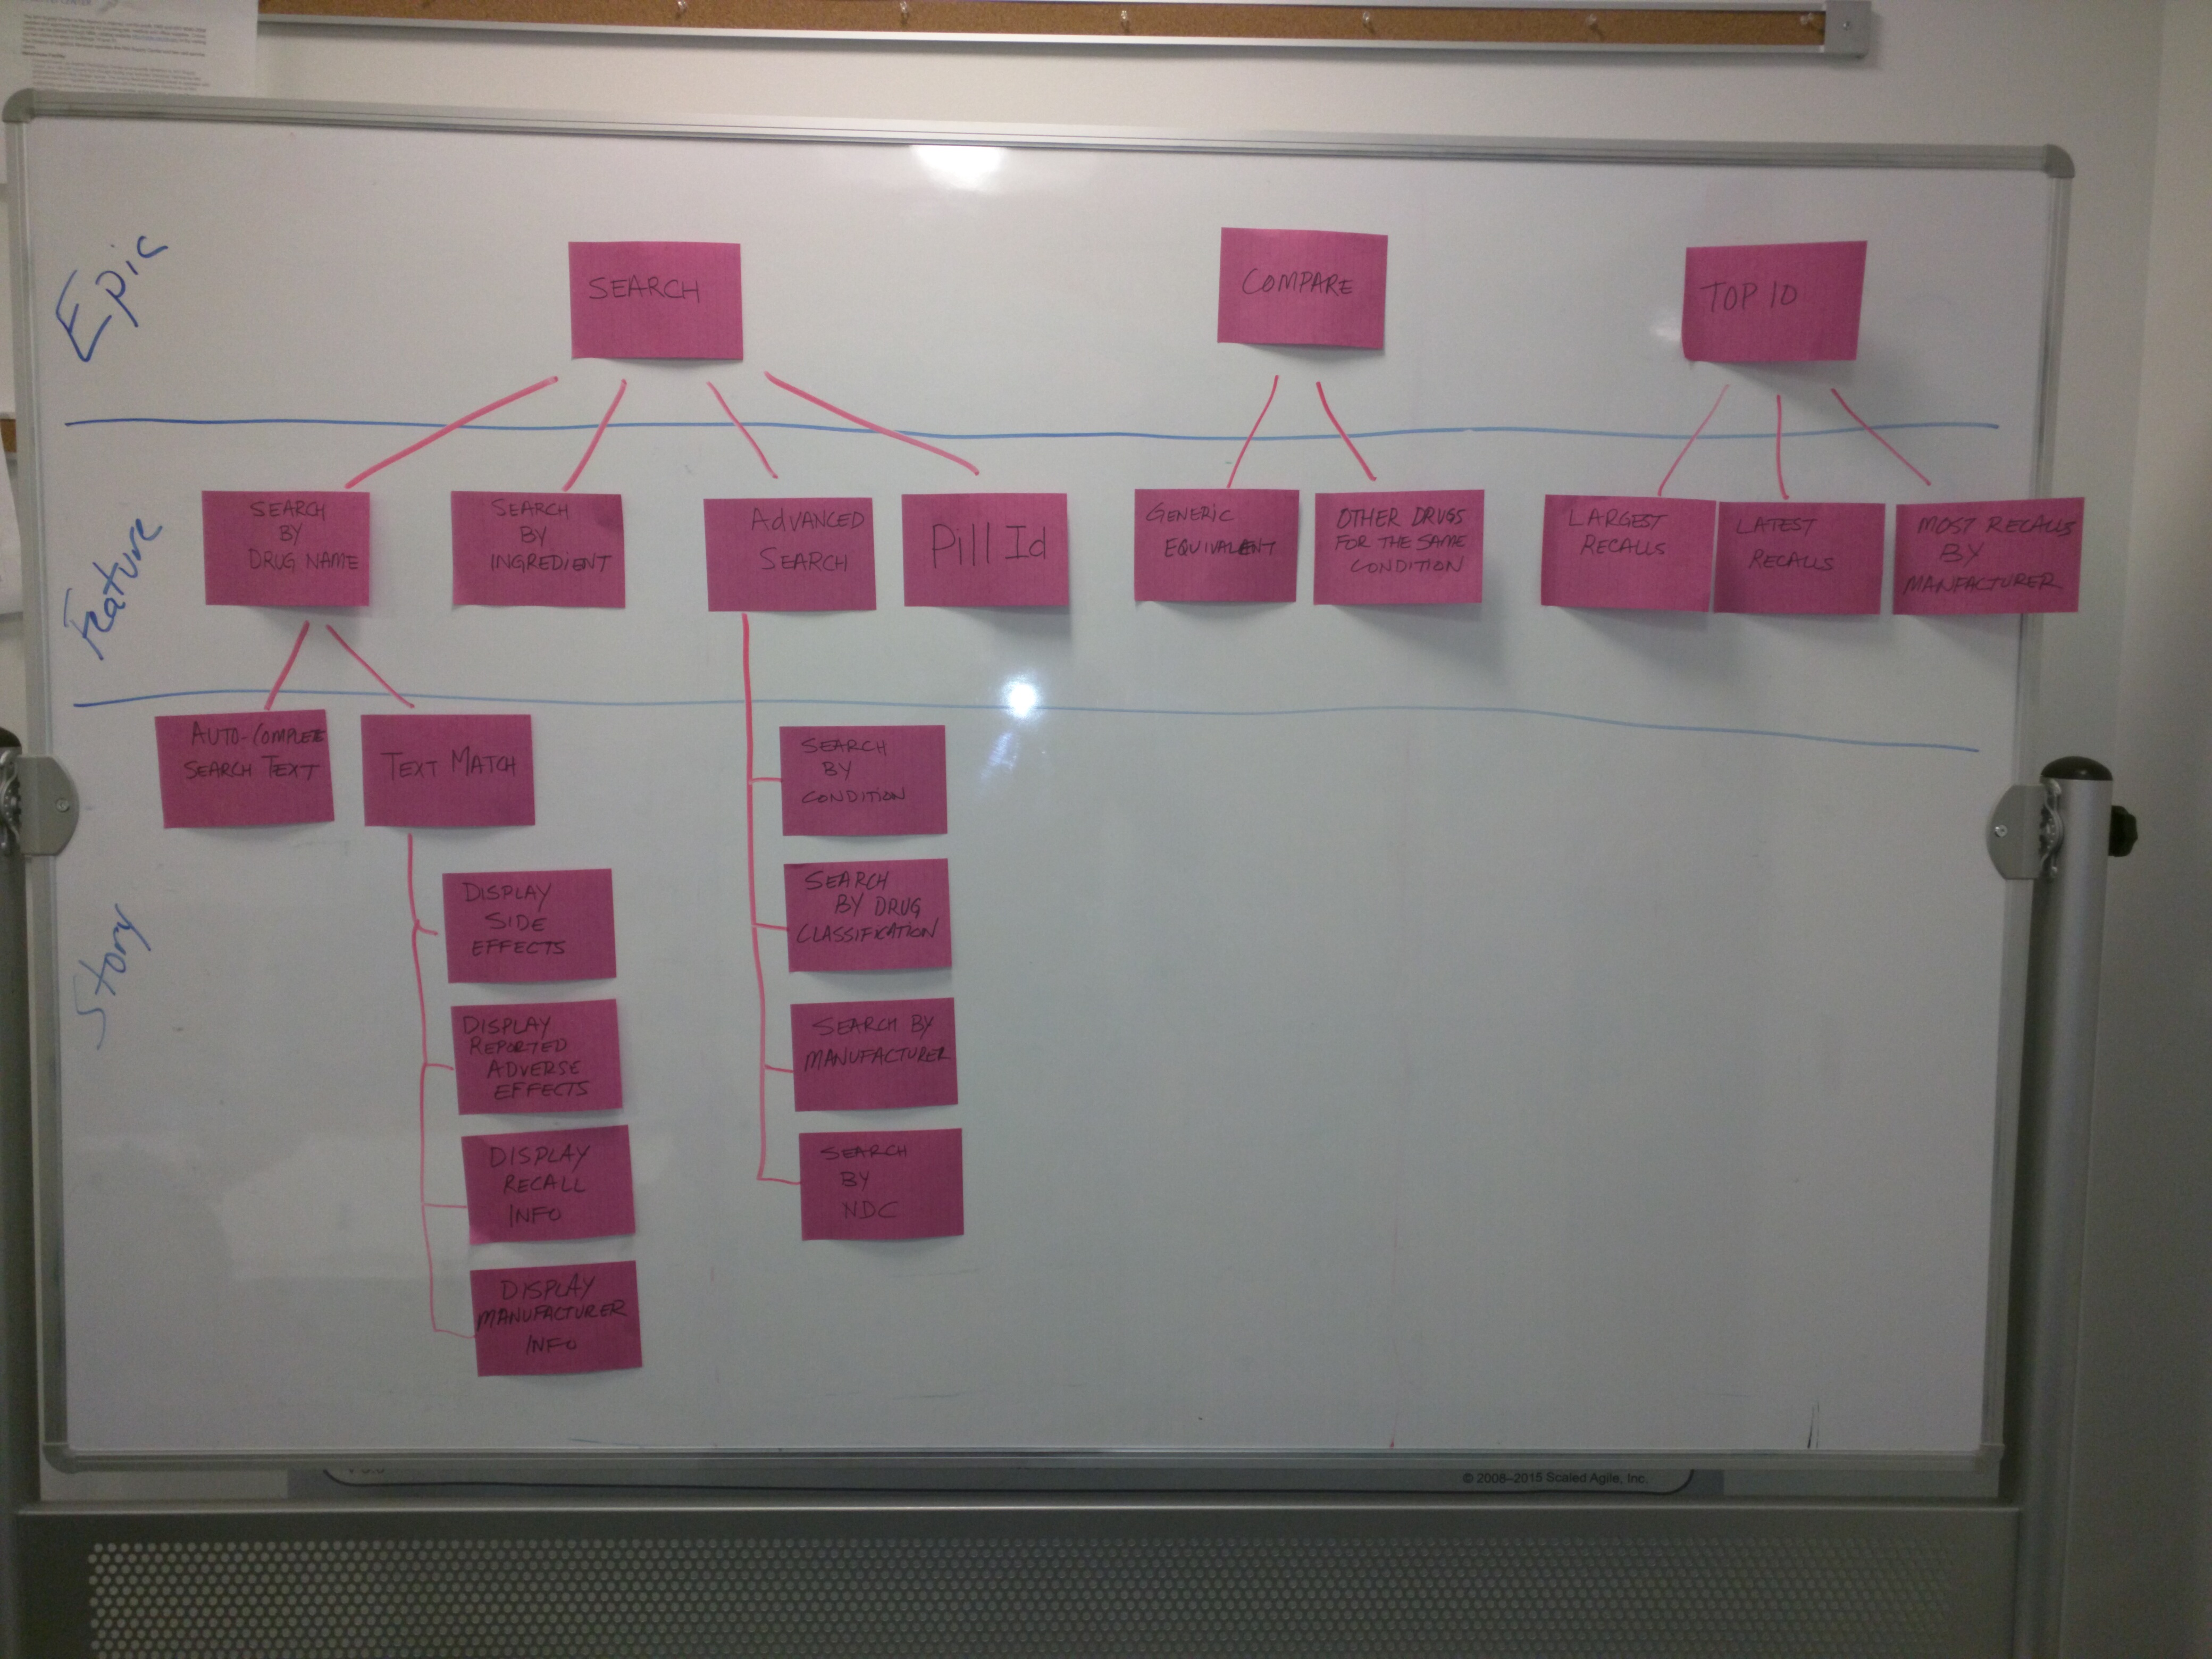 Epic
SEARCH
COMPARE
TOP 10
Feature
SEARCH
BY
DRUG NAME
SEARCH
BY
INGREDIENT
ADVANCED
SEARCH
Pill Id
GENERIC
EQUIVALENT
OTHER DRUGS
FOR THE SAME
CONDITION
LARGEST
RECALLS
LATEST
RECALLS
MOST RECALLS
BY
MANFACTURER
Story
AUTO-COMPLETE
SEARCH TEXT
TEXT MATCH
DISPLAY
SIDE
EFFECTS
DISPLAY
REPORTED
ADVERSE
EFFECTS
DISPLAY
RECALL
INFO
DISPLAY
MANUFACTURER
INFO
SEARCH
BY
CONDITION
SEARCH
BY DRUG
CLASSIFICATION
SEARCH BY
MANUFACTURER
SEARCH
BY
NDC
© 2008–2015 Scaled Agile, Inc.